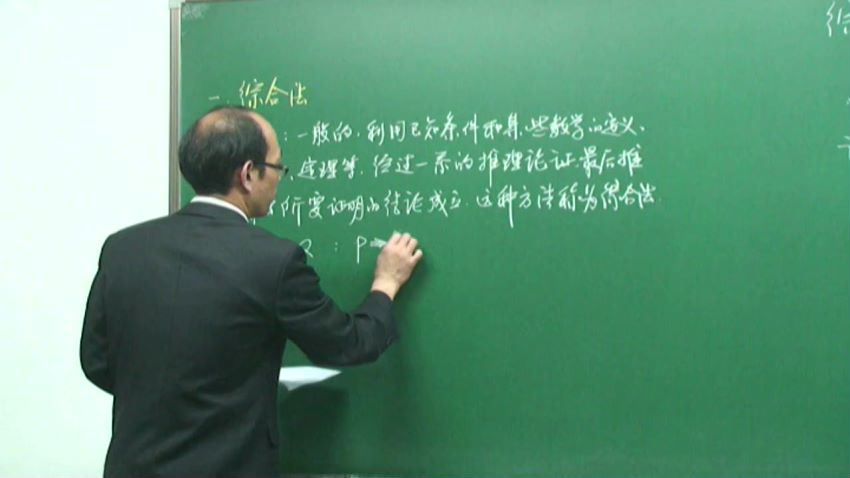 一.综合法
:一般的,利用已知条件和某些数学的定义、
定理等,经过一系的推理论证最后推
所要证明的结论成立.这种方法称为综合法.
: P⇒
综